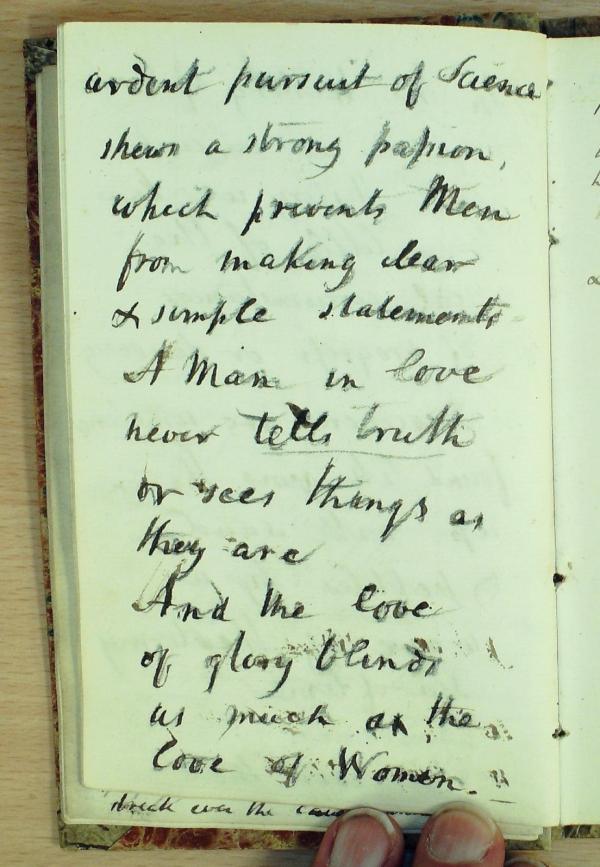 ardent pursuit of Science
shews a strong paſsion,
which prevents Men
from making clear
& simple statements
A Man in love
never tells truth
or sees things as
they are
And the love
of glory blinds
as much as the
love of Women.
over the